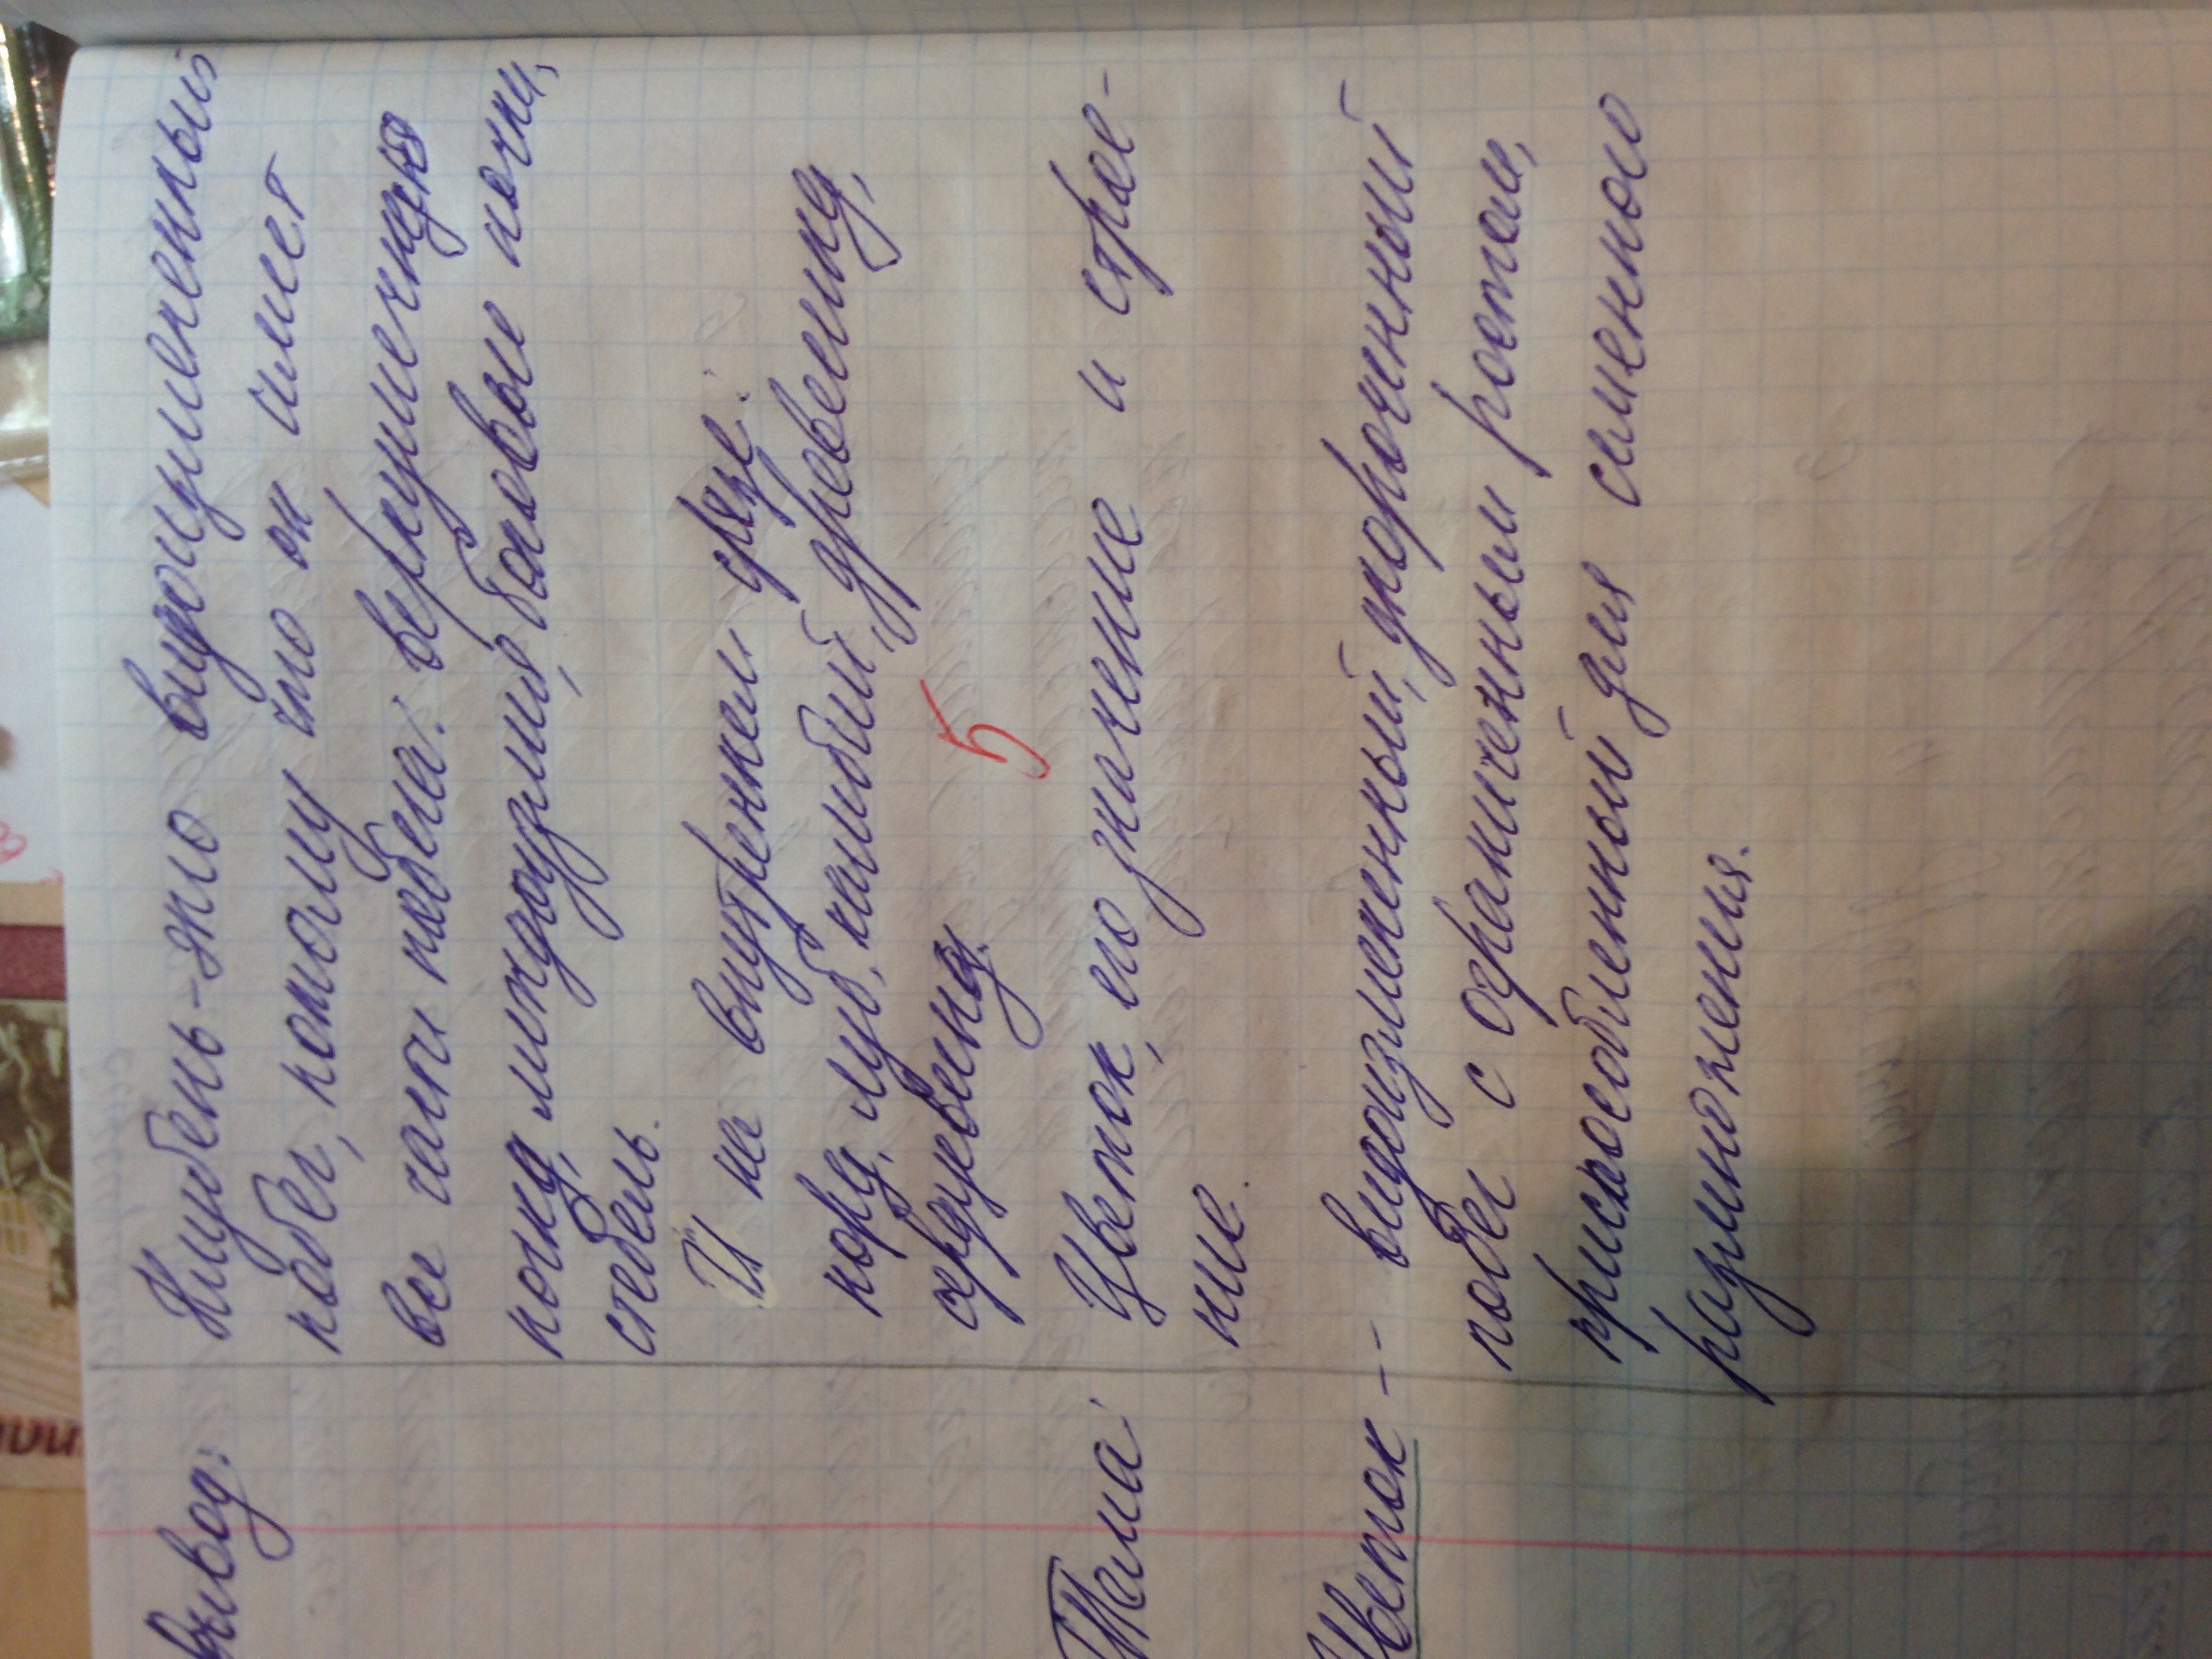 Вывод: Клубень - это видоизмененный
побег, потому что он имеет
все части побега: верхушечную
почку, междоузлия, боковые почки,
стебель.
И на внутреннем срезе:
кора, луб, камбий, древесину,
сердцевину.
5
Тема: Цветок, его значение и строе-
ние.
Цветок - - видоизмененный, укороченный
побег с ограниченным ростом,
приспособленный для семенного
размножения.